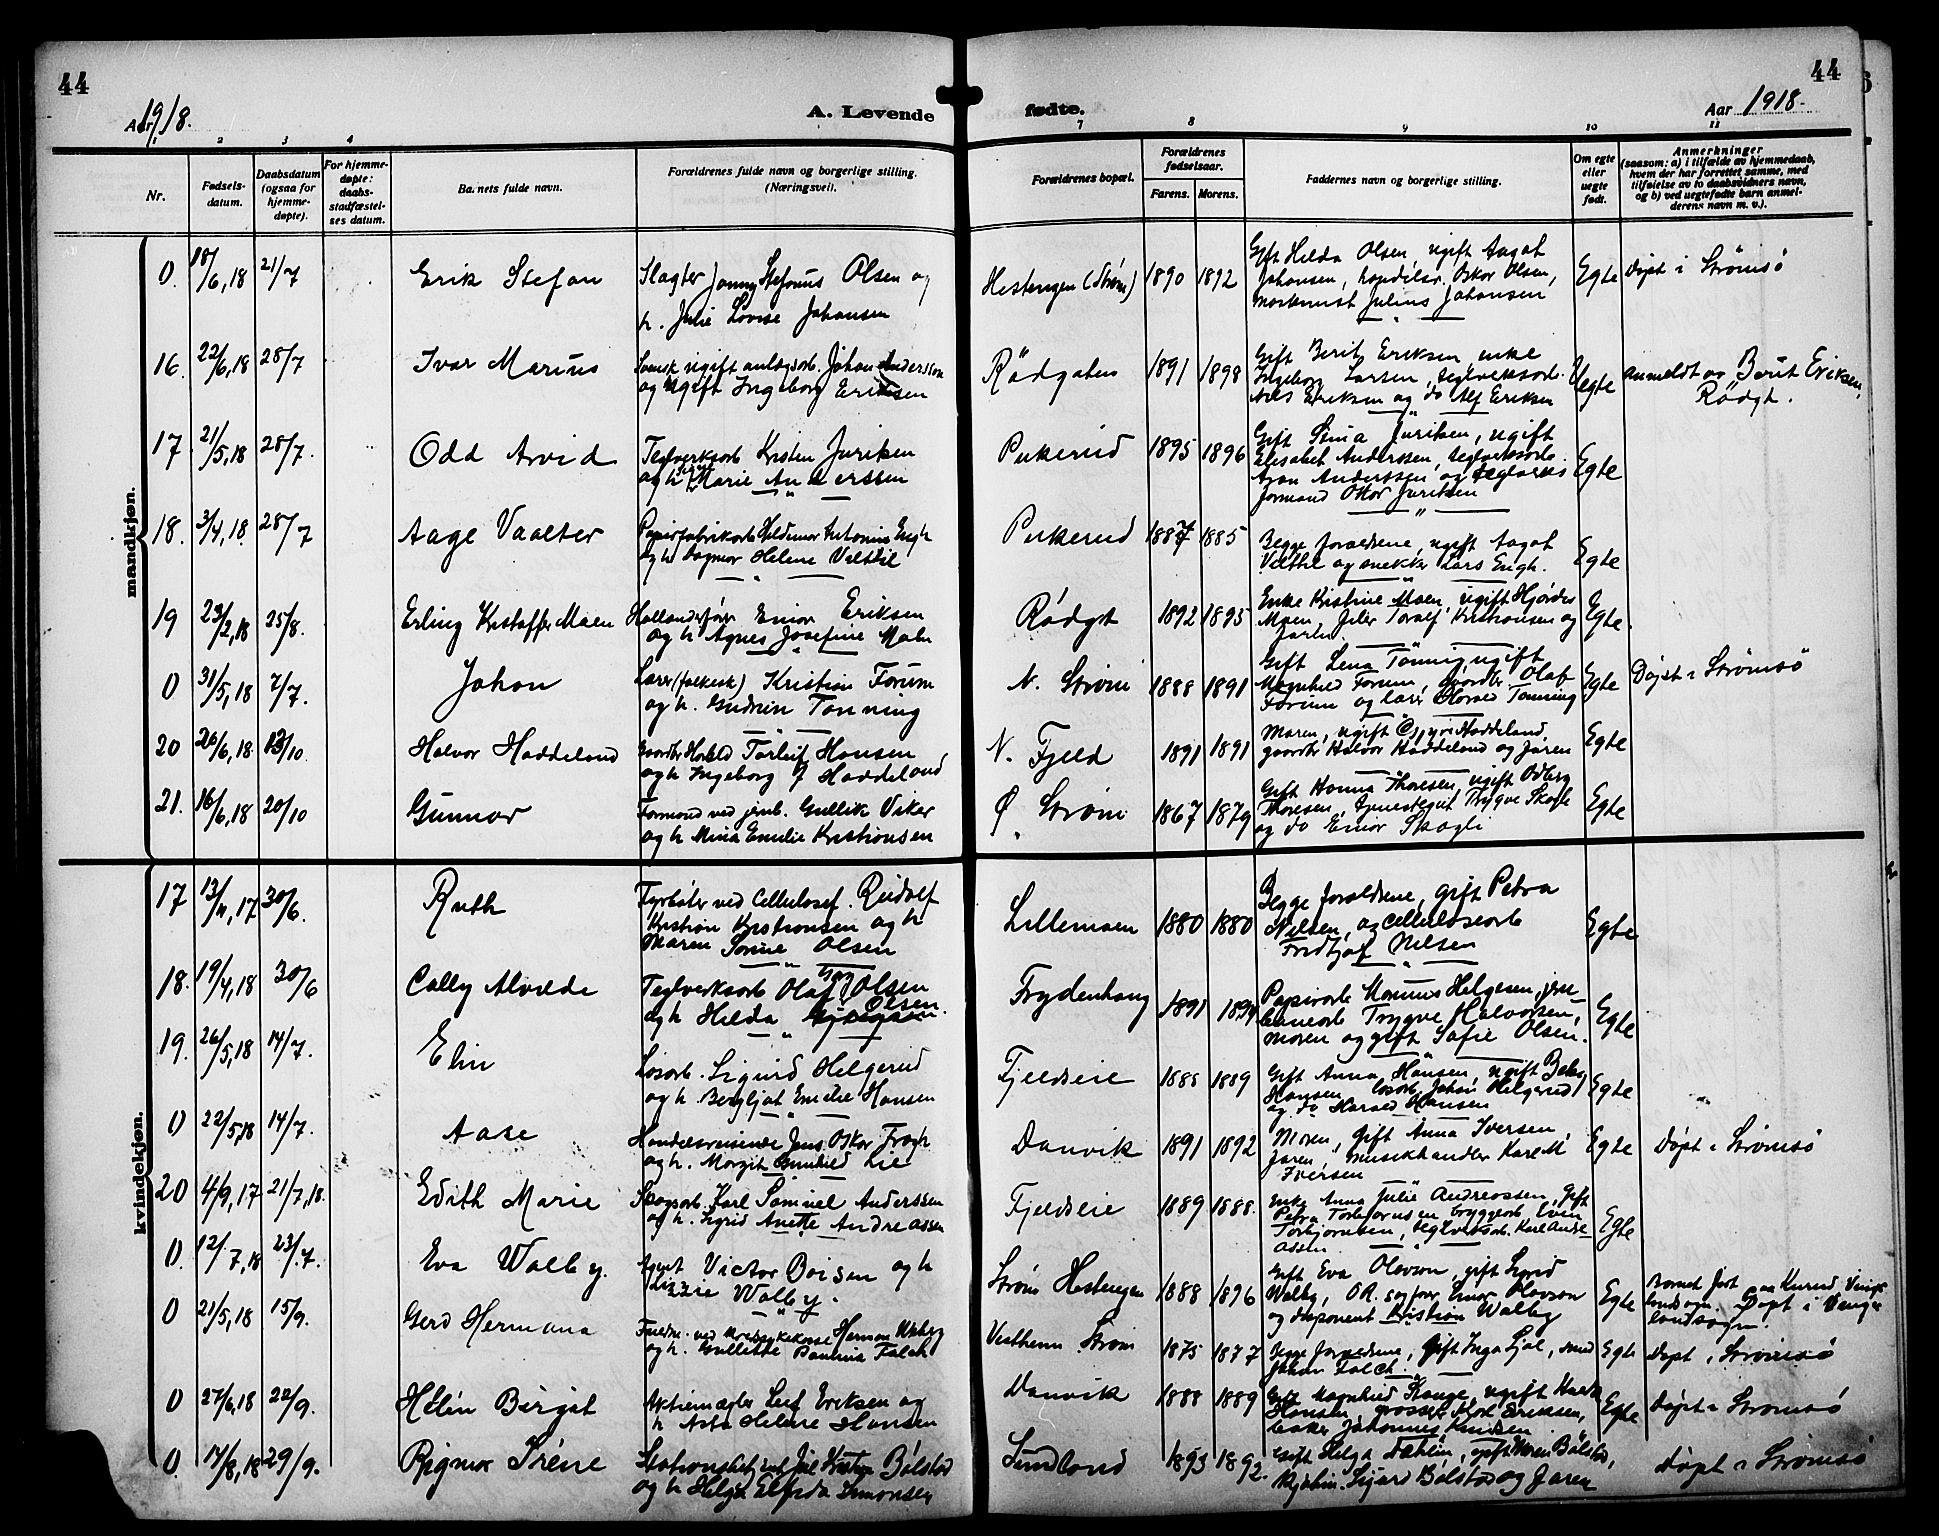 44
44
Aar 1918.
A. Levende
fødte.
Aar 1918.
1 2 3 4 7 8 9 10 11
Nr.
Fødsels-
datum.
Daabsdatum
(ogsaa for
hjemme-
døpte).
For hjemme-
døpte:
daabs-
stadfæstel-
ses datum.
Barnets fulde navn.
Forældrenes fulde navn og borgerlige stilling.
(Næringsvei).
Forældrenes bopæl.
Forældrenes
fødselsaar.
Farens. Morens.
Faddernes navn og borgerlige stilling.
Om egte
eller
uegte
født.
Anmerkninger
(saasom: a) i tilfælde av hjemmedaab,
hvem der har forrettet samme, med
tilføielse av to daabsvidners navn,
og b) ved uegtefødte barn anmel-
derens navn m. v.).
mandkjøn.
0. 18/6,18 21/7 Erik Stefan
Slagter Jonny Stefanus Olsen og
h. Julie Lovise Johansen
Hestengen (Strøm) 1890 1892
Gift Hilda Olsen, ugift Aagot
Johansen, Oskar Olsen,
Julius Johansen
Egte Døpt i Strømsø
16. 22/6,18 28/7 Ivar Marius
Svensk ugift anlægsarb. Johan Andersson
og ugift Ingeborg Eriksen
Rødgaten 1891 1898
Gift Berit Eriksen, enke
Ingeborg Larsen, teglverksarb.
Nils Eriksen og do Alf Eriksen
Uegte anmeldt av Berit Eriksen,
Rødgt.
17. 21/5,18 28/7. Odd Arvid
Teglverksarb Kristen Juriksen
og h Marie Anderssen
Pukerud 1895 1896
Gift Stina Juriksen, ugift
Elisabet Anderssen, teglverksarb.
Anderssen og teglverks
formand Oskar Juriksen
Egte
18. 3/4,18. 28/7 Aage Vaalter
Papirfabrikarb Heldemar Antonius Engh
og h Dagmar Helene Velthe
Pukerud 1887 1885
Begge forældrene, ugift Aagot
Velthe og snekker Lars Engh.
Egte
19 23/2,18 25/8. Erling Kristoffer Moen
Hollanderfører Einar Eriksen
og h Agnes Josefine Moen
Rødgt 1892 1895
Enke Kristine Moen, ugift Hjørdis
Moen, Toralf Kristiansen og
faren
Egte.
0 31/5,18 7/7. Johan
Lærer (folkesk) Kristian Forum
og h. Gudrun Tønning
N. Strøm 1888 1891
Gift Lena Tønning, ugift
Magnhild Forum, gaardbr Olaf
Forum og lærer Harald Tønning
Egte Døpt i Strømsø
20 26/6,18 13/10. Halvor Haddeland
Gaardbr Harald Torleif Hansen
og h Ingeborg J Haddeland
N. Fjeld 1891 1891
Moren, ugift Haddeland,
gaardbr Halvor Haddeland og faren
Egte
21. 16/6,18 20/10 Gunnar
Formand ved jernb. Gullik Viker
og h Mina Emilie Kristiansen
Ø. Strøm 1867 1879
Gift Hanna Thoresen, ugift Odberg
Thoresen, Trygve Skogli
og do Einar Skogli
Egte
kvindekjøn.
17 13/11,17 30/6. Ruth
Fyrbøter ved Cellulosef. Rudolf
Kristian Kristiansen og h
Maren Sorine Olsen
Lillemoen 1880 1880
Begge forældrene, gift Petra
Nilsen, og cellulosearb
Fridtjof Nilsen
Egte
18. 19/4,18 30/6 Cally Alvilde
Teglverksarb Olaf Olsen
og h Hilda Olsen
Frydenhaug 1891 1894
Papirarb Marinus Helgesen, jern-
banearb Trygve Halvorsen,
moren og gift Sofie Olsen.
Egte
19. 26/5,18 14/7. Elin
Løsarb. Sigurd Helgerud
og h. Bergljot Emilie Hansen
Fjeldseie 1888 1889
Gift Anna Hansen, ugift
Hansen, løsarb. Johan Helgerud,
og do Harald Hansen
Egte
0 22/5,18 14/7. Aase
Handelsreisende Jens Oskar Frogh
og h. Margit Gunhild Lie
Danvik 1891 1892
Moren, gift Anna Iversen,
faren, musikhandler Karl M
Iversen
Egte Døpt i Strømsø
20 4/9,17 21/7,18. Edith Marie
Skogsarb. Karl Samuel Anderssen
og h. Sigrid Anette Andreassen
Fjeldseie 1889 1888.
Enke Anna Julie Andreassen, gift
Petra Torbjørnsen, bryggearb. Even
Torbjørnsen, teglverksarb. Karl Andre-
assen
Egte
0. 12/7,18 23/7. Eva Walby.
Agent Victor Boisen og h
Lizzie Walby.
Strøm Hestengen 1888 1896
Gift Eva Olavson, gift Sigrid
Walby, O.R. sagfører Einar Olavson
og disponent Kristian Walby
Egte
Døpt i
0 21/5,18 15/9. Gerd Hermana
Herman Moberg
og h. Gullette Paulina Falch
Vestheim Strøm 1875 1877
Begge forældrene, gift Inga
Johan Falch
Egte Døpt i Strømsø
0 27/6,18 22/9. Helén Birgit
Aktiemægler Leif Eriksen og
h Asta Helene Hansen
Danvik 1888 1889
Gift Magnhild Kauge, ugift
Hansen, grosser Eriksen,
Johannes Knudsen
Egte Døpt i Strømsø
0. 14/8,18 29/9. Rigmor Irene
Bølstad
og h Helga Elfrida Simonsen
Sundland 1893 1892.
Gift Helga Dæhlin, Bølstad,
Sigurd Bølstad og faren
Døpt i Strømsø